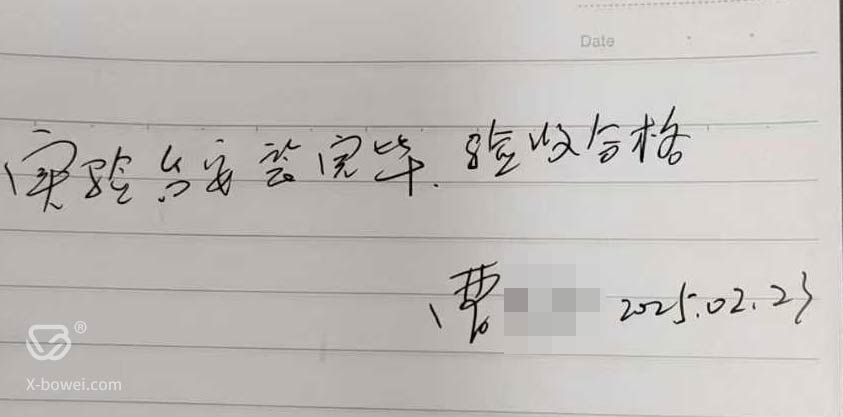 Date
实验台安装完毕.验收合格
2025.02.23
®
X-bowei.com